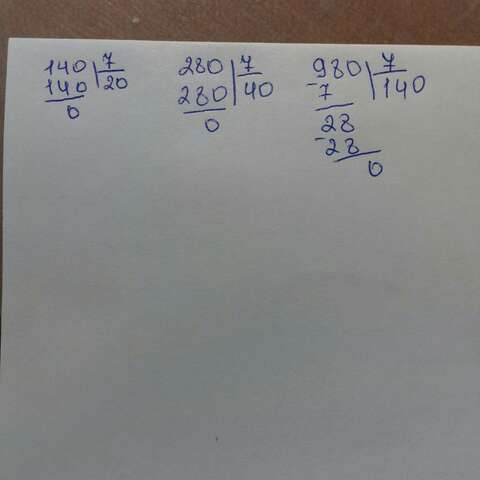 140 7
140 20
0
280 7
280 40
0
-980 7
7 140
28
-28
0